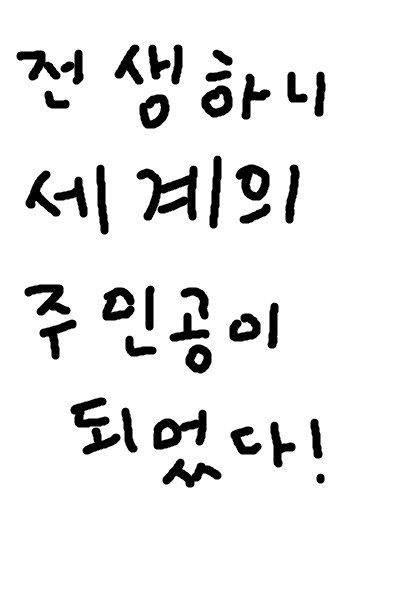 전생하니
세계의
주인공이
되었다!